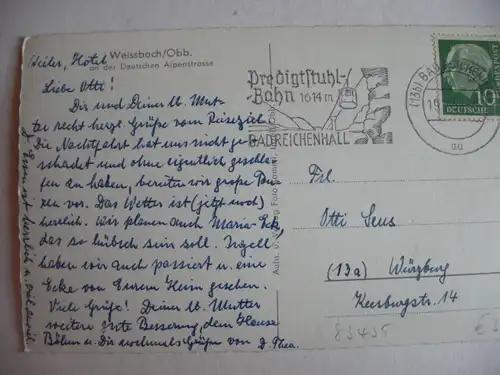 Weiler, Hotel
Weissbach/Obb.
an der Deutschen Alpenstrasse
Liebe Otti!
Dir und Deiner lb. Mut-
ter recht herzl. Grüße vom Reiseziel.
Die Nachtfahrt hat uns nicht ge-
schadet und ohne eigentlich geschla-
fen zu haben, bereiten wir große Tou-
ren vor. Das Wetter ist (jetzt noch)
herrlich. Wir planen auch Maria-Eck,
das so hübsch sein soll. Ingolst.
haben wir auch passiert u. eine
Ecke von Eurem Heim gesehen.
Viele Grüße! Deiner lb. Mutter
weitere gute Besserung, dem Hause
Böhm u. Dir nochmals Grüße von D. Thea.
Predigtstuhl-
Bahn 1614 m
BAD REICHENHALL
(13b) BAD
19
au
10
DEUTSCHE
Frl.
Otti Sens
(13a) Würzburg
Keesburgstr. 14
83435